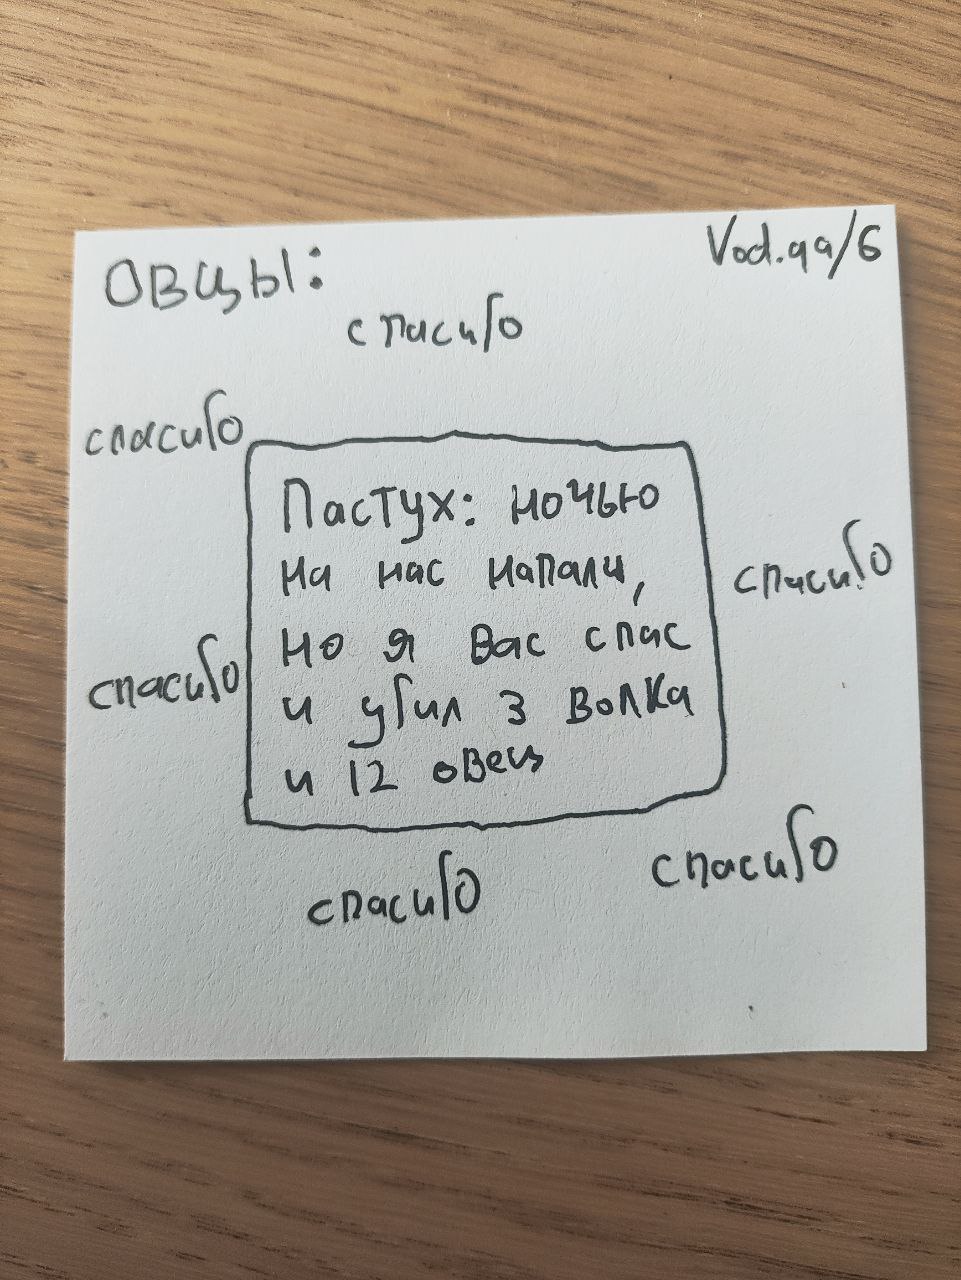 Овцы:
Vod.qa/6
спасибо
спасибо
Пастух: ночью
на нас напали,
но я вас спас
и убил 3 волка
и 12 овец
спасибо
спасибо
спасибо
спасибо